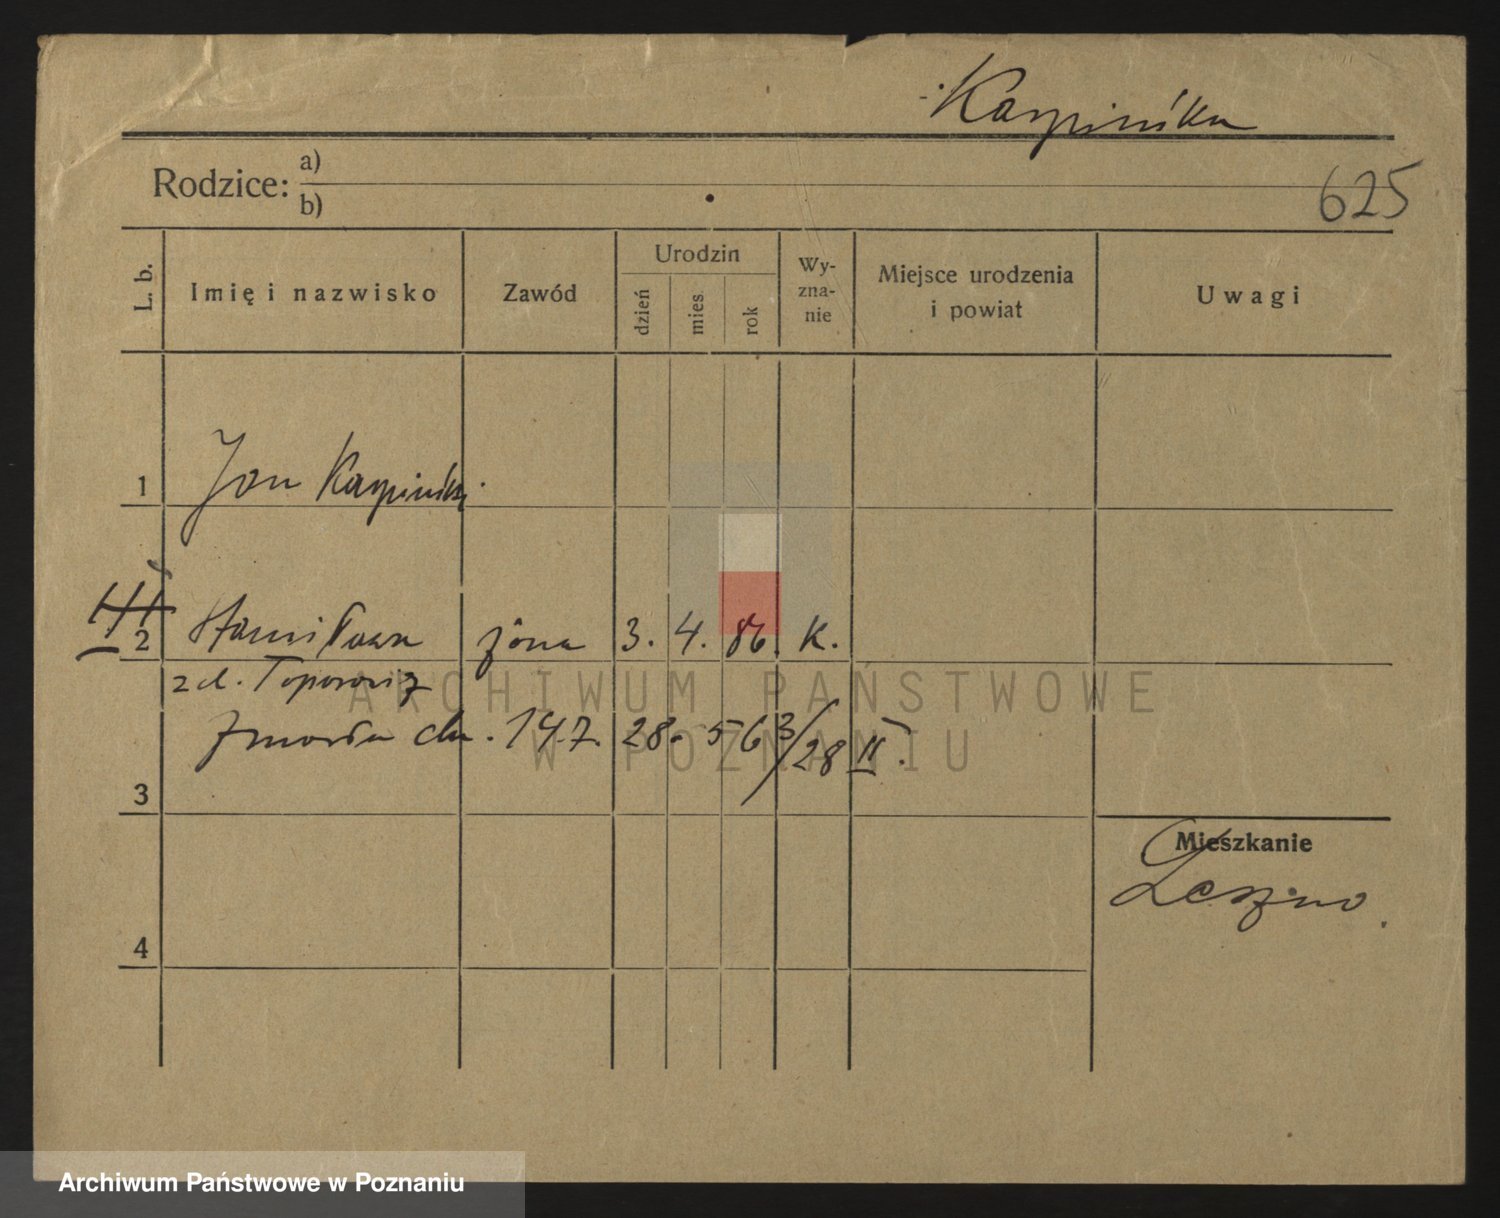 Karpińska
Rodzice: a)
b)
625
L. b. Imię i nazwisko Zawód Urodzin dzień mies rok Wy-zna-nie Miejsce urodzenia i powiat Uwagi
1 Jan Karpiński.
2 Stanisława żona 3. 4. 86. K.
z d. Toporowicz
zmarła dn. 14.7. 28. 563/28 II.
3
Mieszkanie
Leszno.
4
ARCHIWUM PAŃSTWOWE
W POZNANIU
Archiwum Państwowe w Poznaniu